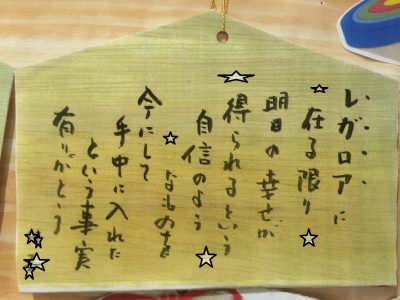 レガロアに
在る限り
明日の幸せが
得られるという
自信のよう
なものを
今にして
手中に入れた
という事実
有りがとう